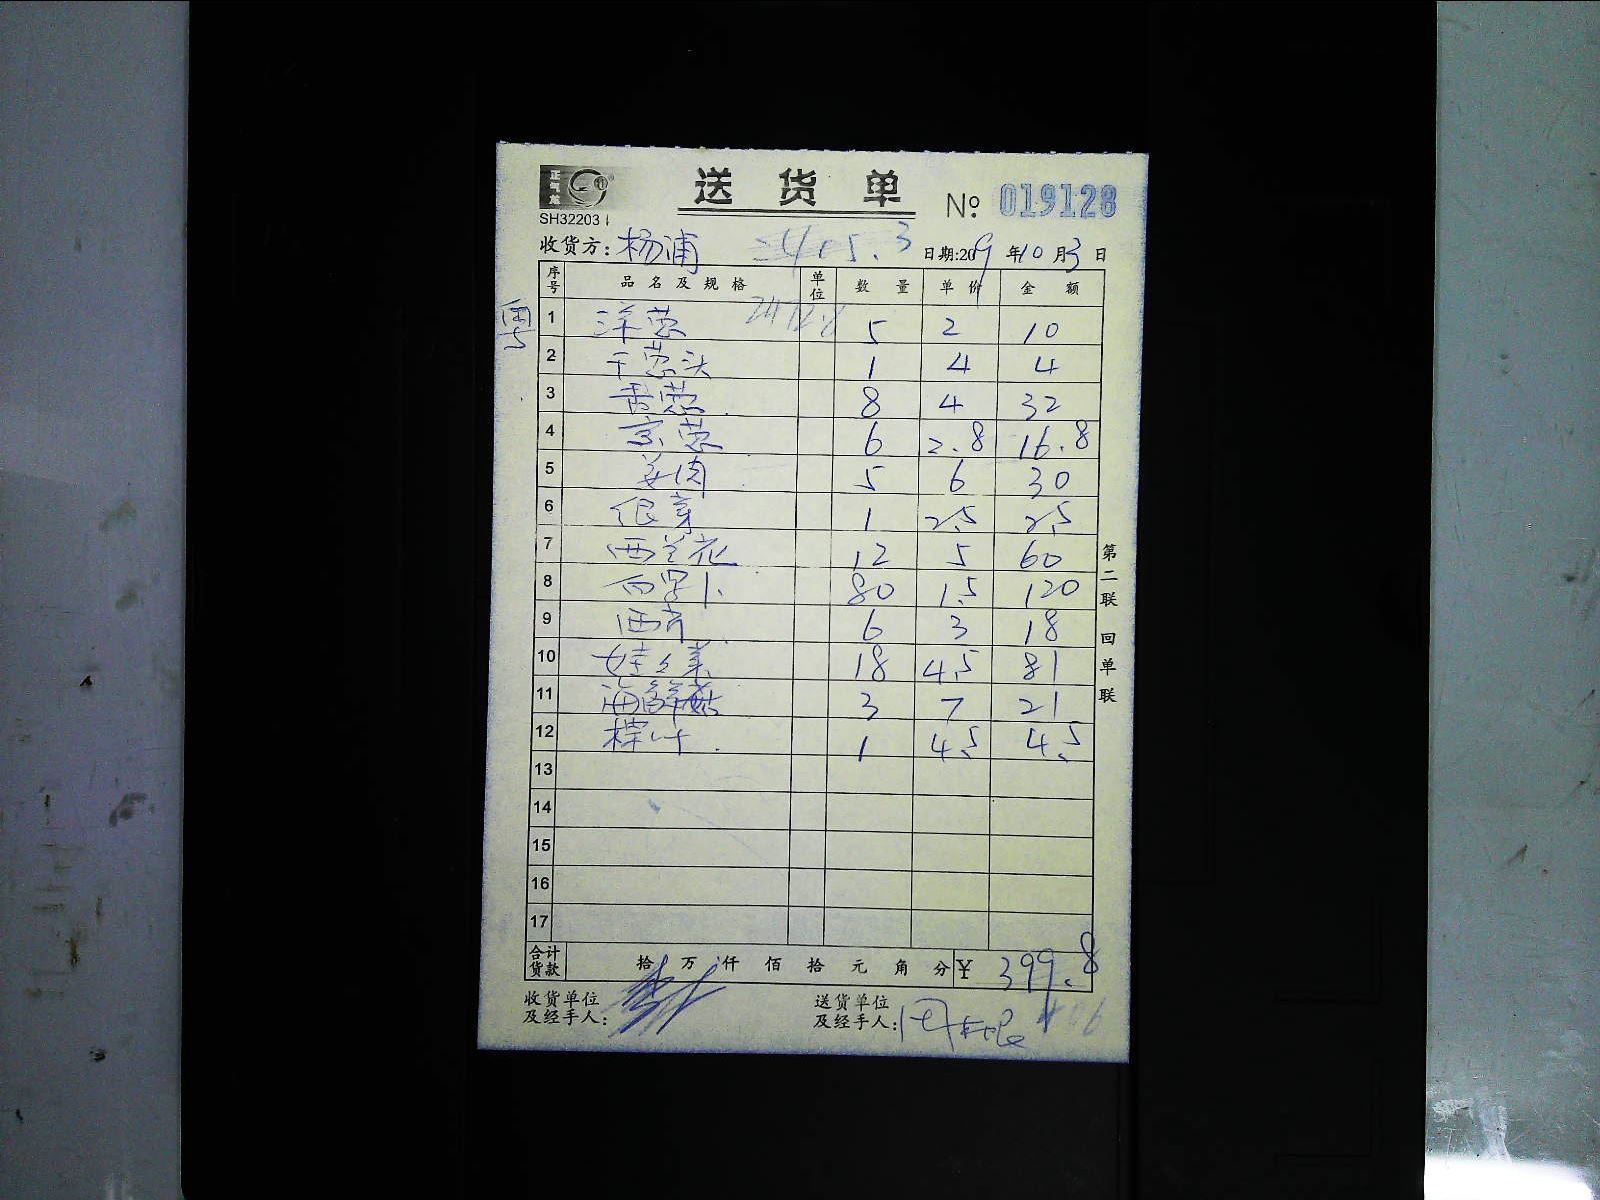 正气龙
送货单 № 019128
SH32203
收货方:杨浦 日期:209年10月3日
序号 品名及规格 单位 数量 单价 金额
1 洋葱 5 2 10
2 干葱头 1 4 4
3 香葱 8 4 32
4 京葱 6 2.8 16.8
5 姜肉 5 6 30
6 银芽 1 2.5 2.5
7 西兰花 12 5 60
8 白罗卜 80 1.5 120
9 西芹 6 3 18
10 娃娃菜 18 4.5 81
11 海鲜菇 3 7 21
12 粽叶 1 4.5 4.5
13
14
15
16
17
合计货款 拾万仟佰拾元角分 ¥ 399.8
收货单位及经手人:
送货单位及经手人:
第二联 回单联